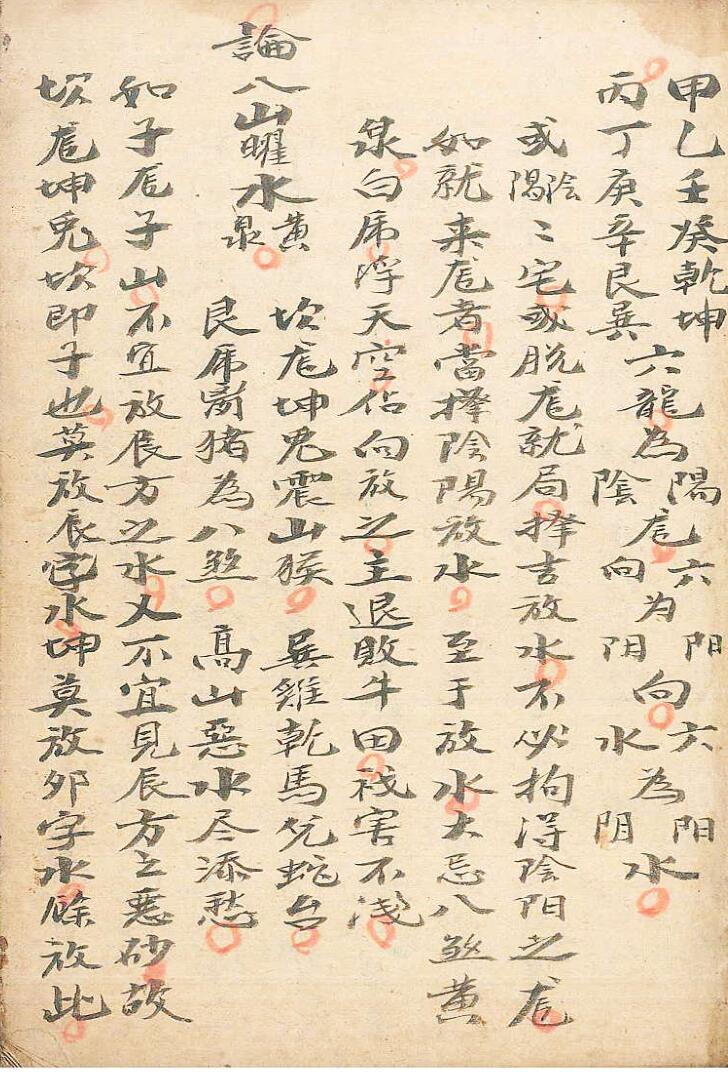 甲乙壬癸乾坤
丙丁庚辛艮巽
六龍為陽陰竜六向为阳阴向六水為阳阴水
或陰陽〻宅或脱竜就局擇吉放水不必拘淂陰阳之竜
如就来竜者當擇陰陽放水 至于放水大忌八煞黄
泉白虎淨天空佔向放之主退敗牛田禍害不淺
論八山曜水黄泉
坎竜坤兎震山猴 巽雞乾馬兌蛇台
艮虎离猪為八煞 高山惡水尽添愁
如子竜子山不宜放辰方之水又不宜見辰方之惡砂故
坎竜坤兎坎即子也莫放辰字水坤莫放卯字水餘放此